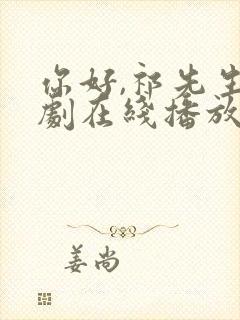 你好,祁先生
劇在綫播放
姜尚